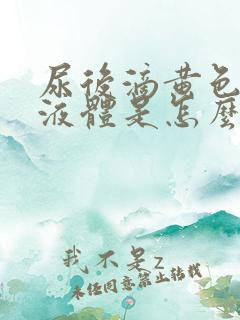 尿後滴黄色
液體是怎麼
我不是z
未任同意禁止转载